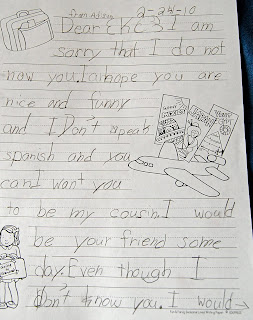 from Adison 2-24-10
Dear I am
sorry that I do not
now you. I hope you are
nice and funny
and I Don't speak
spanish and you
can. I want you
to be my cousin. I would
be your friend some
day. Even though I
don't know you. I would →